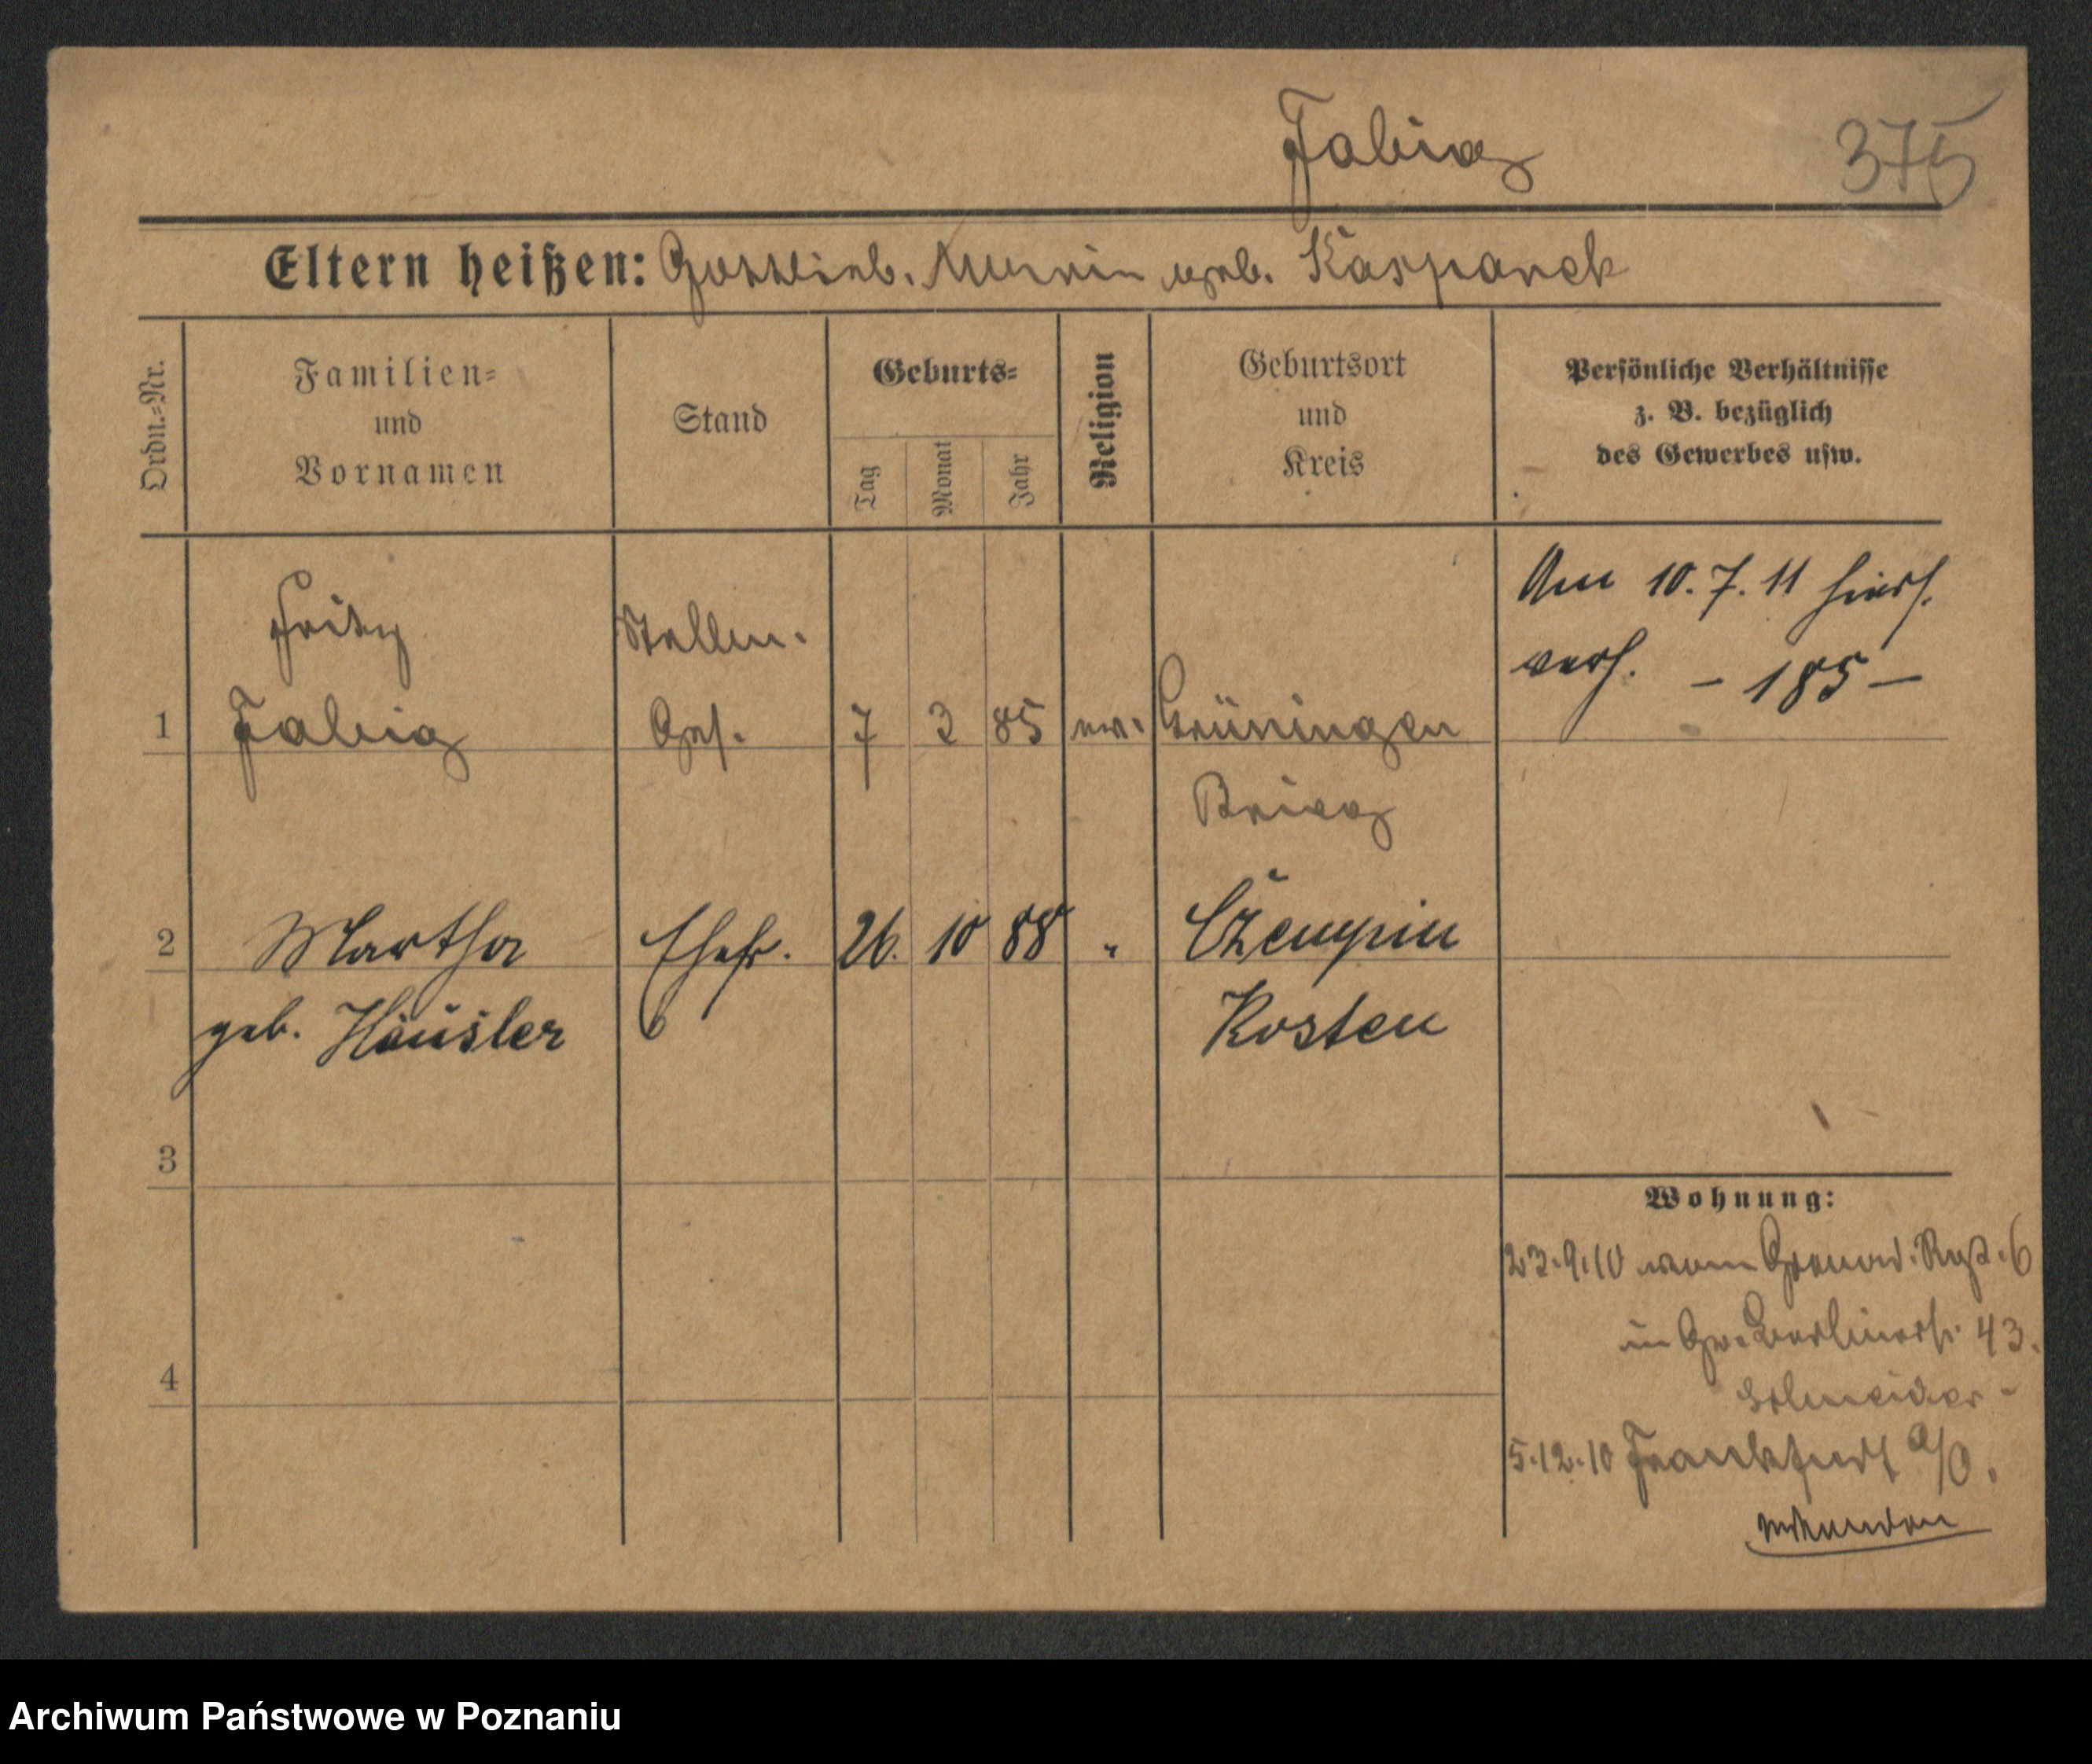 Fabig 375
Eltern heißen: Gottlieb. Marie geb. Kaspanek
Ordn.-Nr.
Familien-
und
Vornamen
Stand
Geburts-
Tag
Monat
Jahr
Religion
Geburtsort
und
Kreis
Persönliche Verhältnisse
z. B. bezüglich
des Gewerbes usw.
Am 10.7.11 hiers.
verh. - 185 -
Fritz
1 Fabig
Ges. 7 3 85 ev. Grüningen
Brieg
2 Martha Ehefr. 26. 10 88 " Czempin
geb. Häusler
Kosten
3
4
Wohnung:
23.9.10 vom Grenad. Rgt. 6
in Gr. Berlinerstr. 43.
Schneider
5.12.10 Frankfurt a/O.